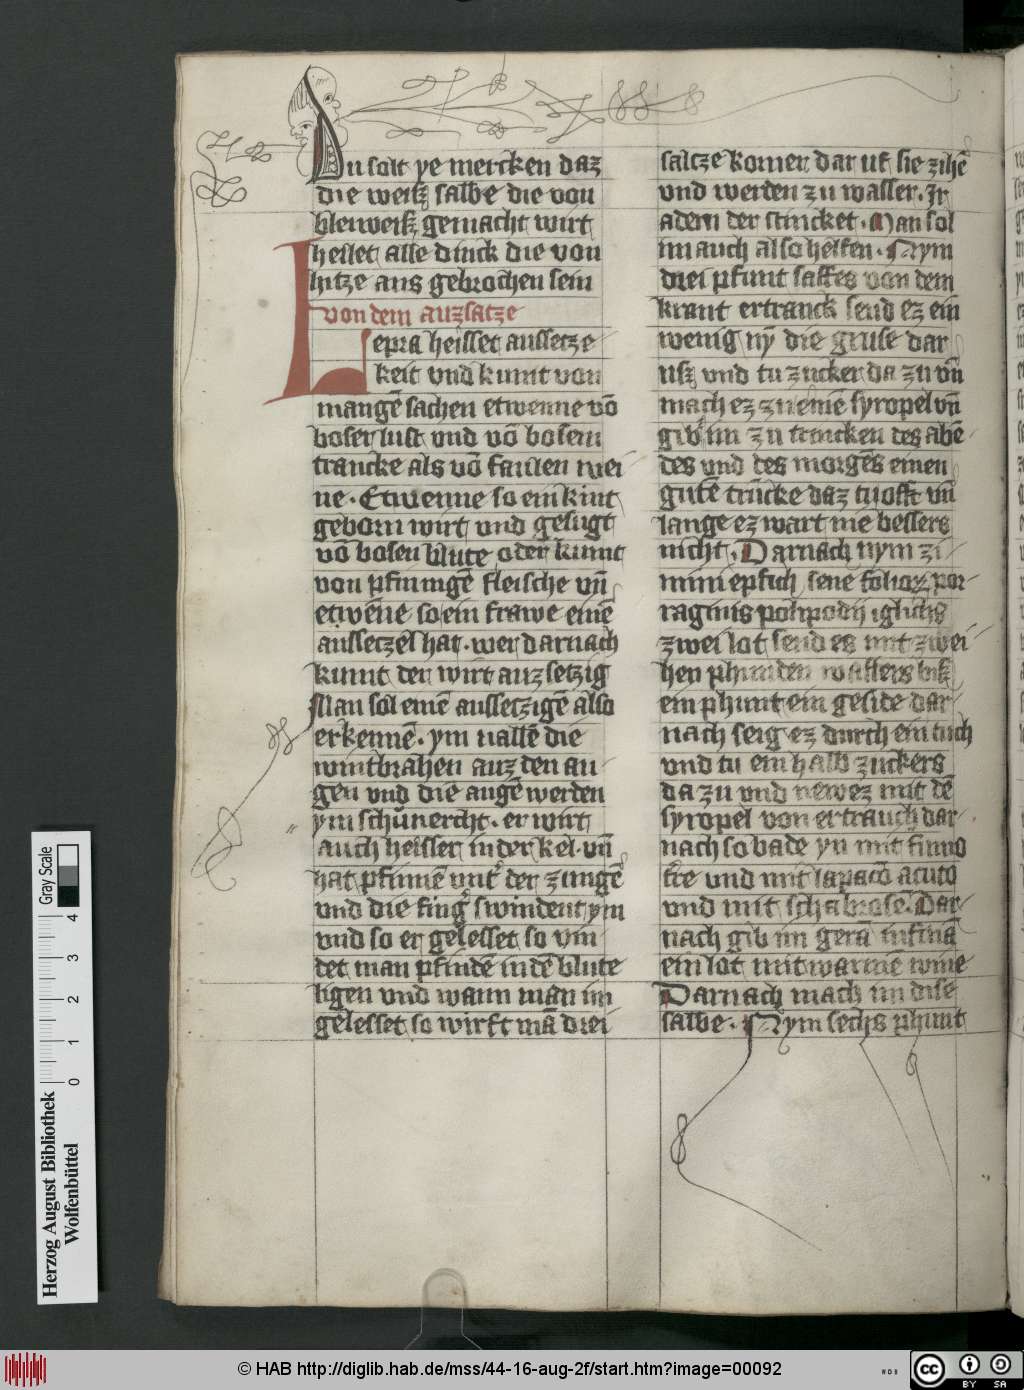 Du solt ye mercken daz
die weisz salbe die von
bleiweisz gemacht wirt
heilet alle dinck die von
hitze aus gebrochen sein
von dem auzsatze
Lepra heisset aussetze
keit vnd kumt von
mangē sachen etwenne vō
boser lust vnd vō bosem
trancke als vō faulen wei
ne · Etwenne so ein kint
geborn wirt vnd gesugt
vō bosen blute oder kumt
von pfinnigē fleische vn̄
etwēne so ein frawe einē
aussetzel hat · wer darnach
kumt der wirt auzsetzig
Man sol einē aussetzigē also
erkennē · ym uallē die
wintbrahen auz den au
gen vnd die augē werden
ym schunercht · er wirt
auch heisser in der kel · vn̄
hat pfinnē vnt̕ der zungē
vnd die fing̕ swindent ym
vnd so er gelesset so vin
det man pfindē in dē blute
ligen vnd wann man im
gelesset so wirft mā drei
saltze korner dar uf sie zihē
vnd werden zu wasser · Ir
adem der stincket · Man sol
im auch also helfen · Nym
drei pfunt saffes von dem
kraut ertranck seud ez ein
wenig ny̅ die gruse dar
usz vnd tu zucker da zu vn̄
mach ez zu einē syropel vn̄
gib im zu trincken des abē
des vnd des morgēs einen
gutē trūcke daz tu offt vn̄
lange ez wart nie bessers
nicht · Darnach nym zi
mini epfich sene folior̄ por
raginis polipodij iglichs
zwei lot seud es mit zwei
hen phunden wassers bisz
ein phunt ein geside dar
nach seig ez durch ein tuch
vnd tu ein halb zuckers
da zu vnd newez mit dē
syropel von ertrauch dar
nach so bade yn mit fumo
t̕re vnd mit lapacō acuto
vnd mit schabrose · Dar
nach gib im gerā infinā
ein lot mit warmē wine
Darnach mach im dise
salbe · Nym sechs phunt
Herzog August Bibliothek
Wolfenbüttel
Gray Scale
0 1 2 3 4
© HAB http://diglib.hab.de/mss/44-16-aug-2f/start.htm?image=00092
WDB
cc BY SA